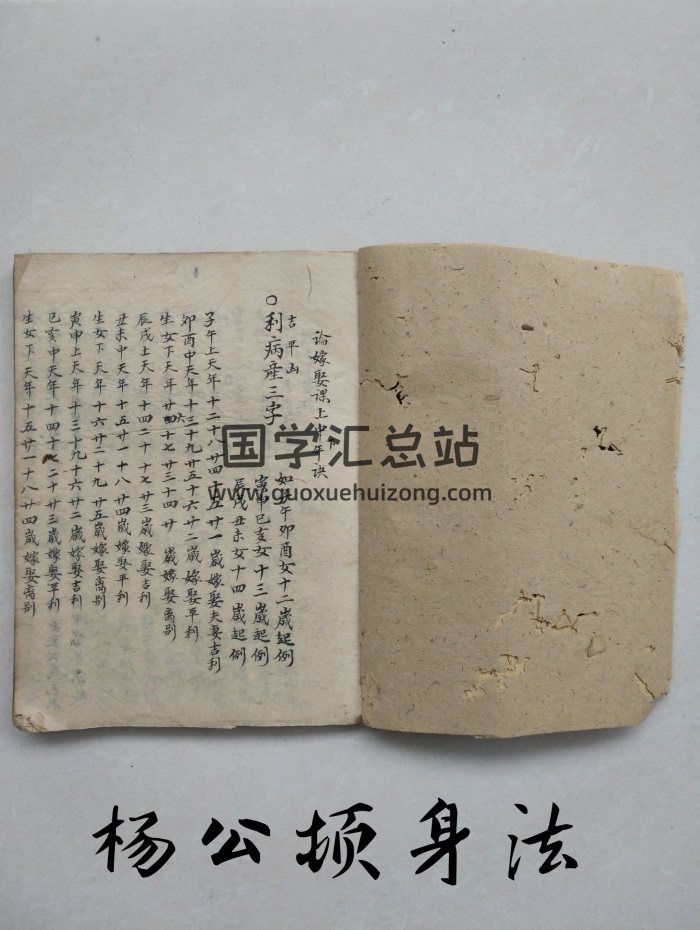 論嫁娶課上中下年訣
吉平凶
○利病産三字
如子午卯酉女十二歲起例
寅申巳亥女十三歲起例
辰戌丑未女十四歲起例
子午上天年十二十八廿四十五廿一歲嫁娶夫妻吉利
卯酉中天年十三十九廿五十六廿二歲嫁娶平利
生女下天年十四十七廿三十四廿歲嫁娶离别
辰戌上天年十四二十十七廿三歲嫁娶吉利
丑未中天年十五廿一十八廿四歲嫁娶平利
生女下天年十六廿二十九廿五歲嫁娶离别
寅申上天年十三十九十六廿二歲嫁娶吉利
巳亥中天年十四十七二十廿三歲嫁娶平利
生女下天年十五廿一十八廿四歲嫁娶离别
国学汇总站
www.guoxuehuizong.com
杨公顿身法